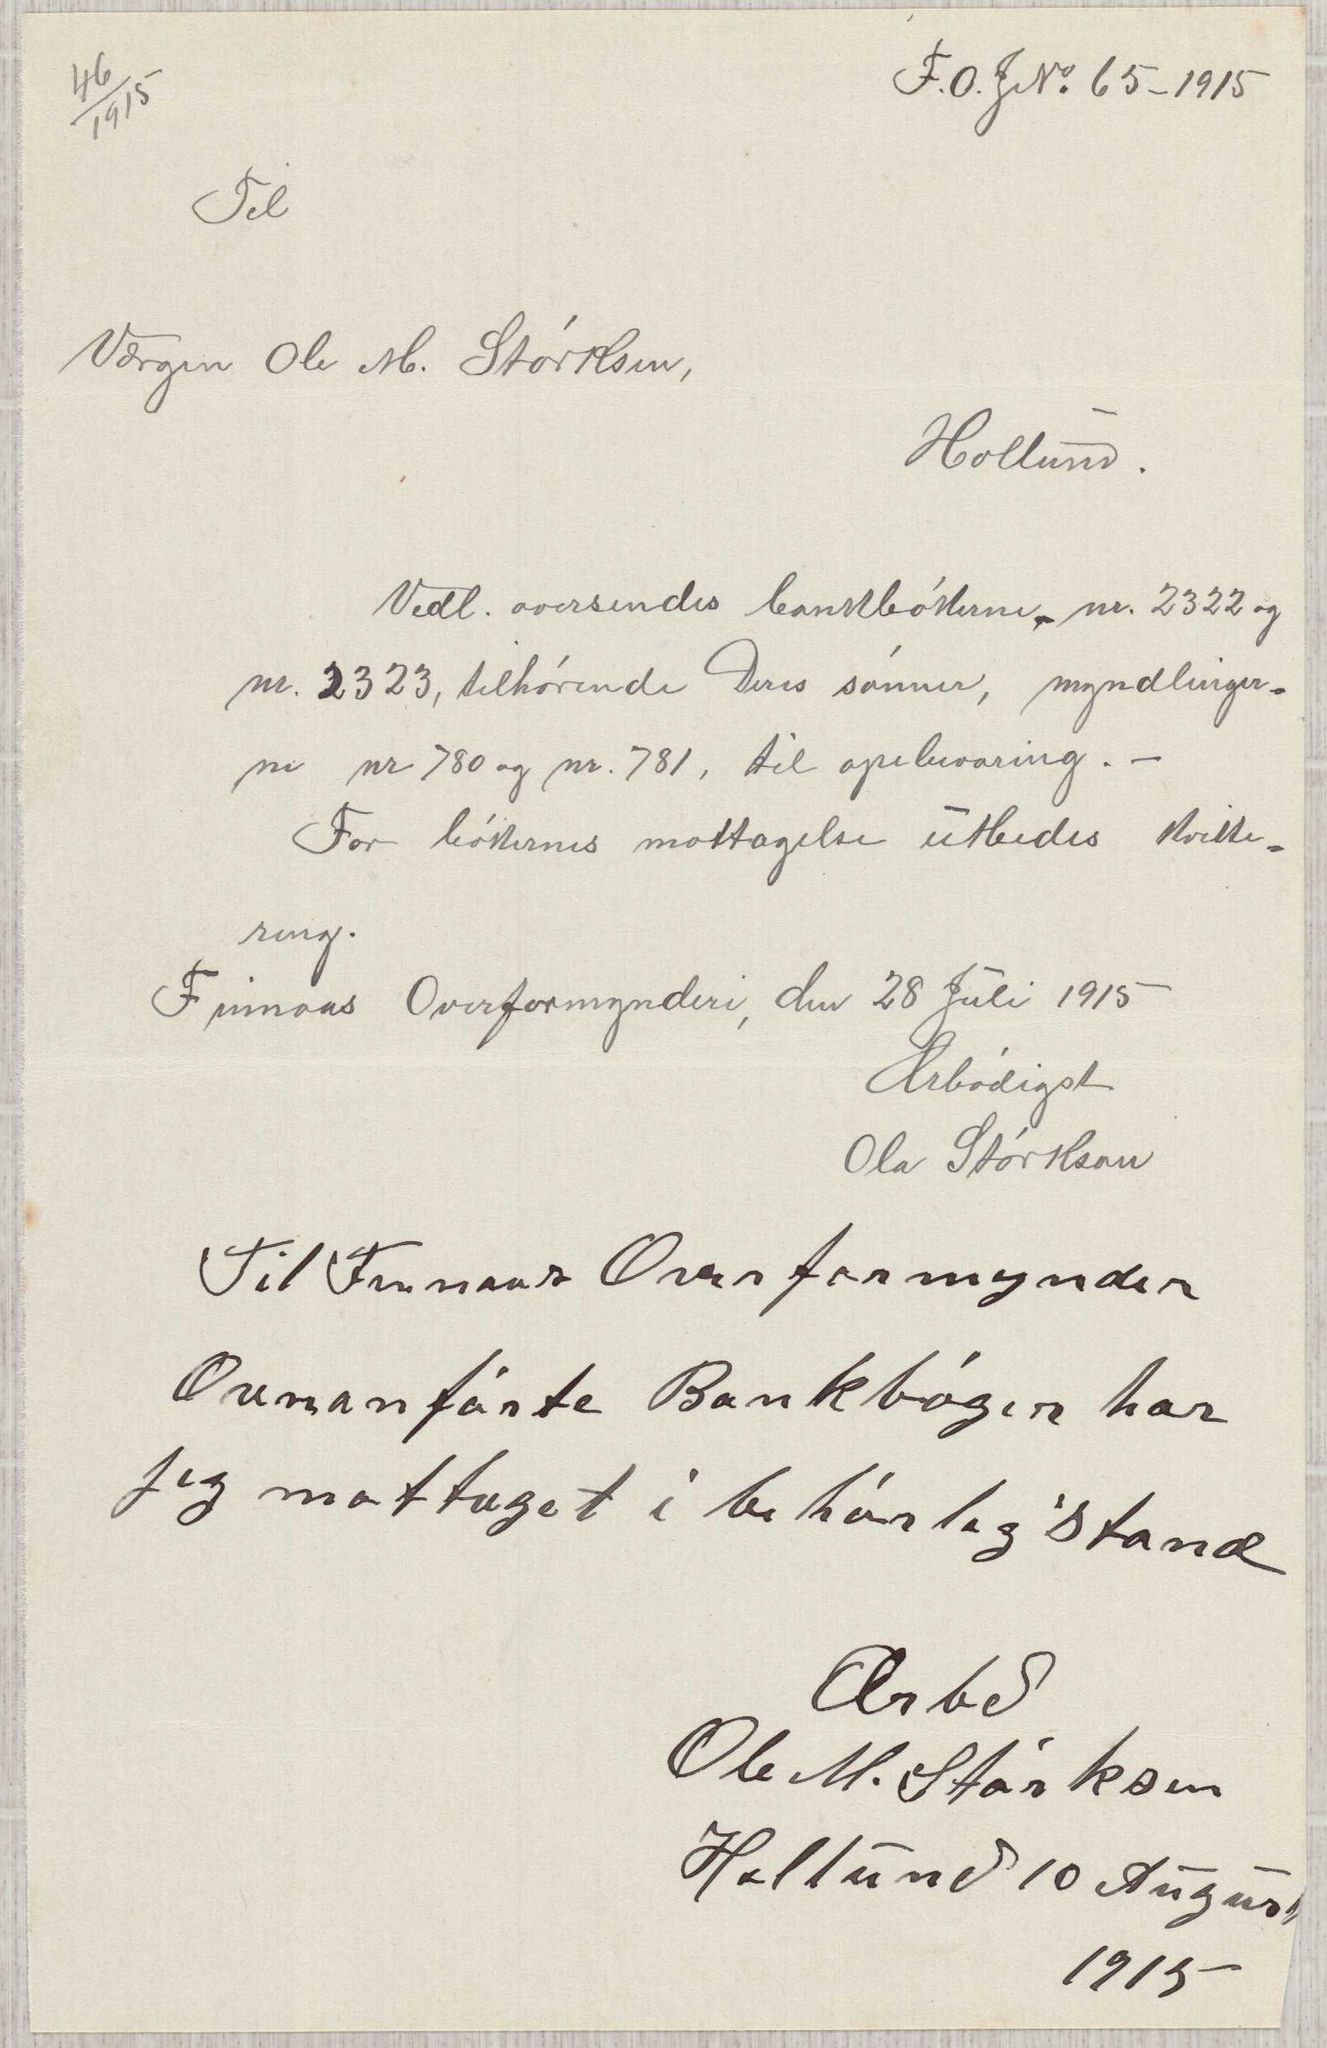 46
1915
F.O.J.No. 65-1915
Til
Værgen Ole M. Størksen,
Hollund.
Vedl. oversendes bankbøkerne, nr. 2322 og
nr. 2323, tilhørende Deres sønner, myndlinger-
ne nr 780 og nr. 781, til opbevaring. -
For bøkernes mottagelse utbedes kvitte-
ring.
Finnaas Overformynderi, den 28 Juli 1915
Ærbødigst
Ola Størkson
Til Finnaas Overformynder
Ovenanførte Bankbøger har
jeg mottaget i behørlig Stand
Ærbd
Ole M. Størksen
Hollund 10 August
1915